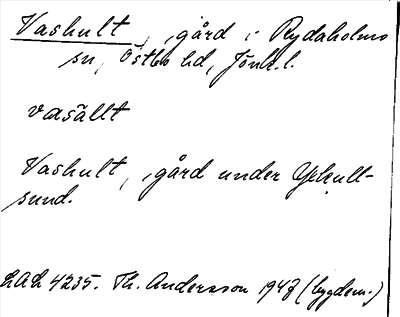 Vashult, gård i Rydaholms
sn, Östbo hd, Jönk. l.
vasállt
Vashult, gård under
sund.
LAL 4235. Th. Andersson 1947 (bygdem.)